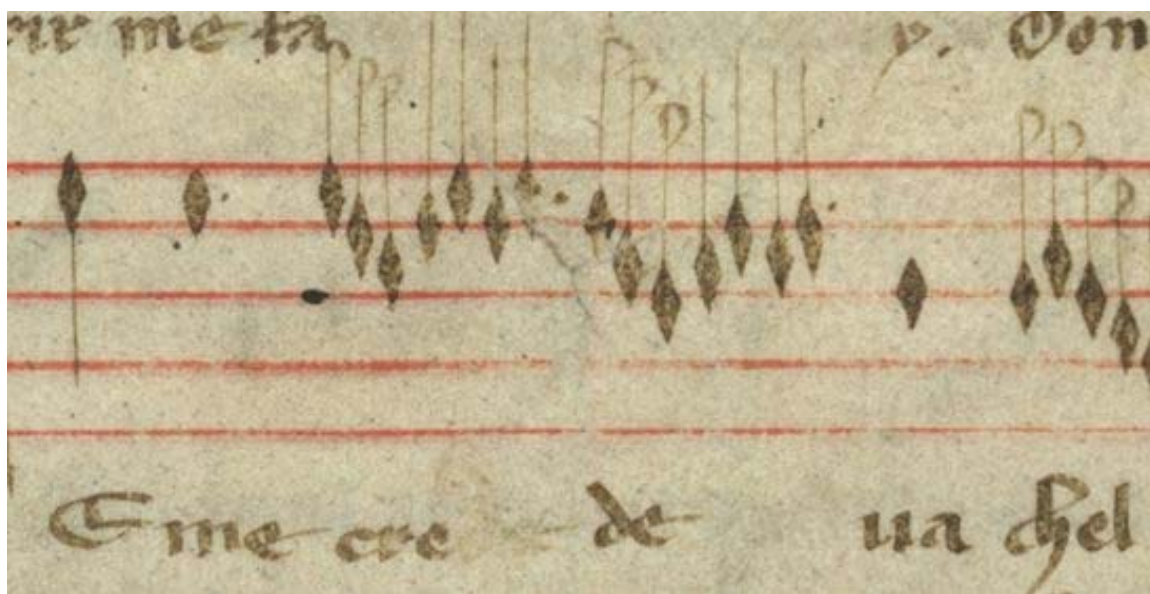 me ta y. Don
E me cre de ua chel